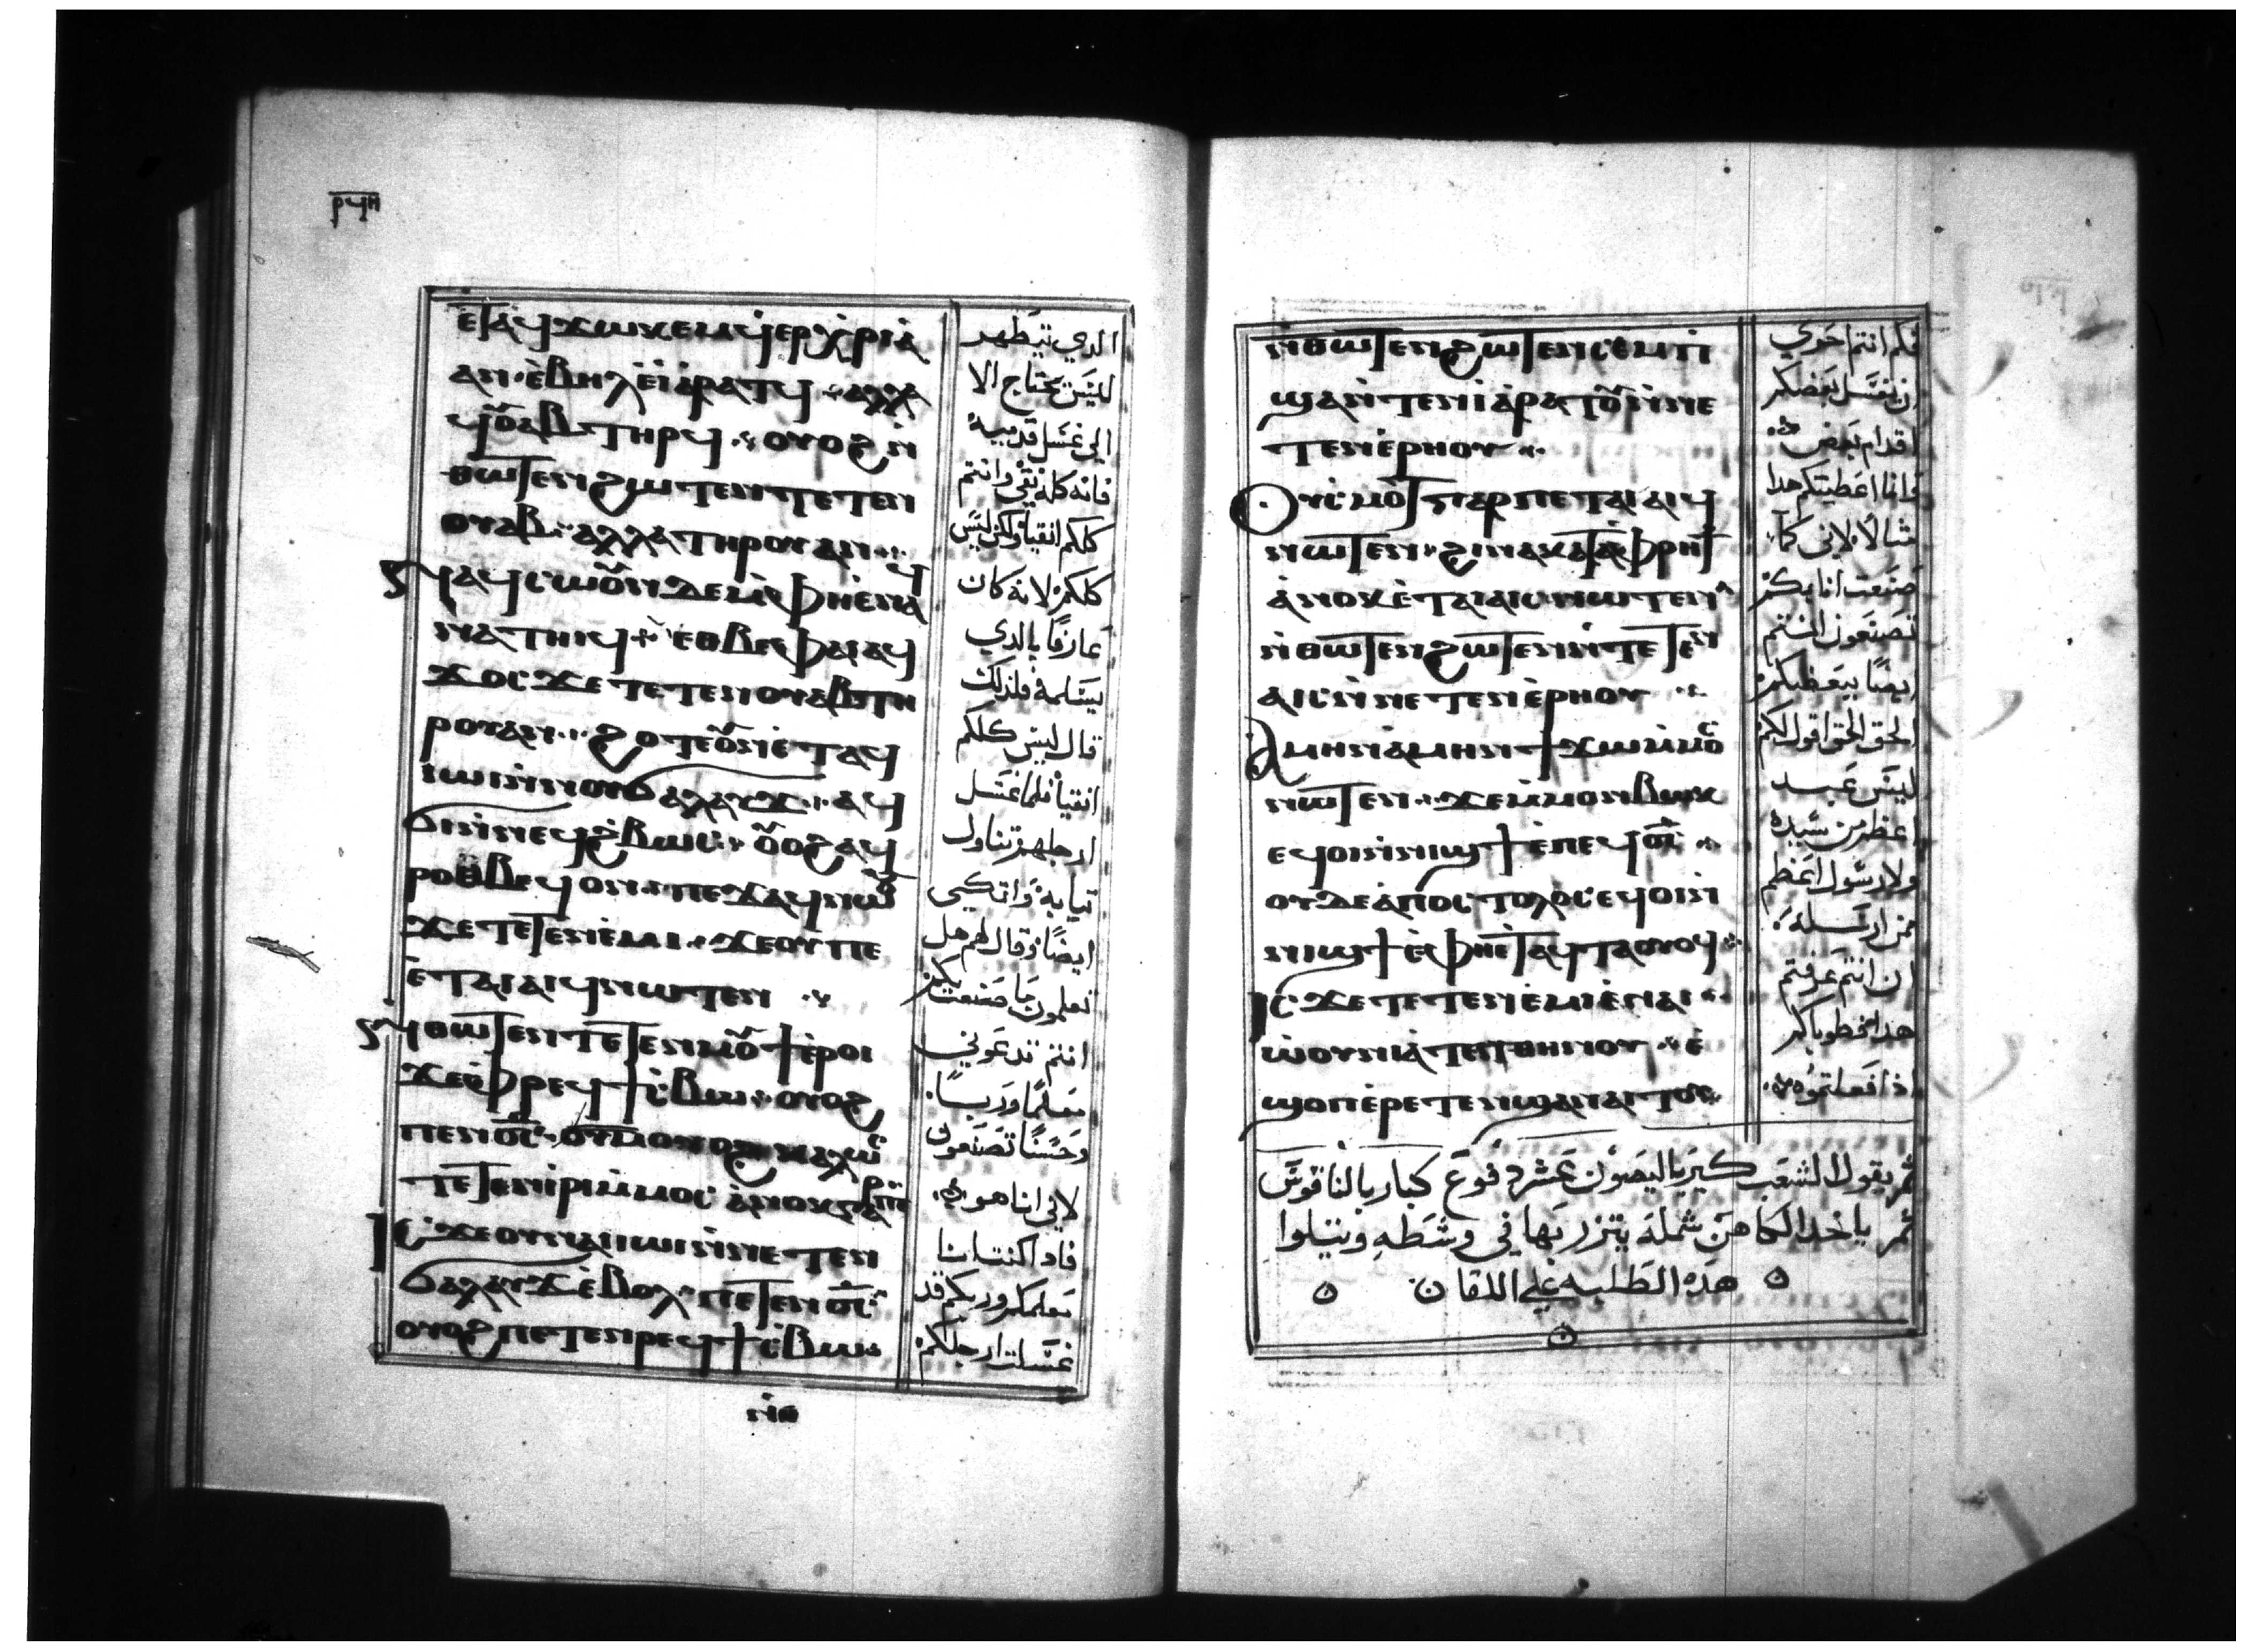 ⲣϥⲏ
ⲉⲧⲁϥϫⲱⲕⲉⲙ ϥⲉⲣⲭⲣⲓⲁ
ⲁⲛ ⲉⲃⲏⲗ ⲉⲓⲁⲣⲁⲧϥ ⲁⲗⲗⲁ
ϥⲟⲩⲁⲃ ⲧⲏⲣϥ ⲟⲩⲟϩ ⲛ̀
ⲑⲱⲧⲉⲛ ϩⲱⲧⲉⲛ ⲧⲉⲧⲉⲛ
ⲟⲩⲁⲃ ⲁⲗⲗⲁ ⲧⲏⲣⲟⲩ ⲁⲛ
ⲛⲁϥⲥⲱⲟⲩⲛ ⲇⲉ ⲙ̀ⲫⲏ ⲉⲛⲁ
ⲛⲁⲧⲏⲓϥ ⲉⲑⲃⲉ ⲫⲁⲓ ⲁϥ
ϫⲟⲥ ϫⲉ ⲧⲉⲧⲉⲛⲟⲩⲁⲃ ⲧⲏ
ⲣⲟⲩ ⲁⲛ ϩⲟⲧⲉ ⲟⲩⲛ ⲉⲧⲁϥ
ⲓⲱⲓ ⲛ̀ⲛⲟⲩϭⲁⲗⲁⲩϫ ⲁϥ
ϭⲓ ⲛ̀ⲛⲉϥϩ̀ⲃⲱⲥ ⲟⲩⲟϩ ⲁϥ
ⲣⲟⲑⲃⲉϥ ⲟⲛ ⲡⲉϫⲁϥ ⲛⲱⲟⲩ
ϫⲉ ⲧⲉⲧⲉⲛⲉ̀ⲙⲓ ϫⲉ ⲟⲩ ⲡⲉ
ⲉ̀ⲧⲁⲓⲁⲓϥ ⲛⲱⲧⲉⲛ
ⲛ̀ⲑⲱⲧⲉⲛ ⲧⲉⲧⲉⲛⲙⲟⲩϯ ⲉ̀ⲣⲟⲓ
ϫⲉ ⲫⲣⲉϥϯⲥ̀ⲃⲱ ⲟⲩⲟϩ
ⲡⲉⲛⲟ̅ⲥ̅ ⲟⲩⲟϩ ⲕⲁⲗⲱⲥ
ⲧⲉⲧⲉⲛⲓ̀ⲣⲓ ⲙ̀ⲙⲟⲥ ⲁ̀ⲛⲟⲕ ⲅⲁⲣ ⲡⲉ
ⲓⲥϫⲉ ⲟⲩⲛ ⲁⲓⲓⲱⲓ ⲛ̀ⲛⲉⲧⲉⲛ
ϭⲁⲗⲁⲩϫ ⲉ̀ⲃⲟⲗ ⲡⲉⲧⲉⲛⲟ̅ⲥ̅
ⲟⲩⲟϩ ⲡⲉⲧⲉⲛⲣⲉϥϯⲥ̀ⲃⲱ
الدي تيطهر
لليس يحتاج الا
الي غسل قدميه
فانه كله نقي وانتم
كلكم انقيا ولكن ليس
كلكم لانه كان
عارفًا بالدي
يسلمه فلذلك
قال ليس كلكم
انقيا فلما غسل
ارجلهم تناول
تيابه واتكي
ايضًا وقال لهم هل
تعلمون ما صنعت بكم
انتم تدعوني
معلمًا وربًا
وحسنًا تصنعون
لاني انا هو
فادا كنت انا
معلمكم وربكم قد
غسلت ارجلكم
ⲛ̀ⲑⲱ
ⲛ̀ⲑⲱⲧⲉⲛ ϩⲱⲧⲉⲛ ⲥⲉⲙⲡ̀
ϣⲁ ⲛ̀ⲧⲉⲛⲓⲁⲣⲁⲧⲟⲩ ⲛ̀ⲛⲉ
ⲧⲉⲛⲉ̀ⲣⲏⲟⲩ
ⲟⲩⲥ̀ⲙⲟⲧ ⲅⲁⲣ ⲡⲉⲧⲁⲓⲁⲓϥ
ⲛⲱⲧⲉⲛ ϩⲓⲛⲁ ⲕⲁⲧⲁ ⲫⲣⲏϯ
ⲁ̀ⲛⲟⲕ ⲉ̀ⲧⲁⲓⲁⲓⲥ ⲛⲱⲧⲉⲛ
ⲛ̀ⲑⲱⲧⲉⲛ ϩⲱⲧⲉⲛ ⲛ̀ⲧⲉⲧⲉⲛ
ⲁⲓⲥ ⲛ̀ⲛⲉⲧⲉⲛⲉ̀ⲣⲏⲟⲩ
ⲁⲙⲏⲛ ⲁ̀ⲙⲏⲛ ϯϫⲱ ⲙ̀ⲙⲟⲥ
ⲛⲱⲧⲉⲛ ϫⲉ ⲙ̀ⲙⲟⲛ ⲃⲱⲕ
ⲉϥⲟⲓ ⲛ̀ⲛⲓϣϯ ⲉ̀ⲡⲉϥⲟ̅ⲥ̅
ⲟⲩⲇⲉ ⲁ̀ⲡⲟⲥⲧⲟⲗⲟⲥ ⲉϥⲟⲓ ⲛ̀
ⲛⲓϣϯ ⲉ̀ⲫⲏⲉⲧⲁϥⲧⲁⲟⲩⲟϥ
ⲓⲥϫⲉ ⲧⲉⲧⲉⲛⲉ̀ⲙⲓ ⲉ̀ⲛⲁⲓ
ⲱ̀ⲟⲩⲛⲓⲁ̀ⲧⲉⲛⲑⲏⲛⲟⲩ ⲉ̀
ϣⲱⲡ ⲉ̀ⲣⲉⲧⲉⲛϣⲁⲛⲁⲓⲧⲟⲩ
فكم انتم احري
ان يغسل بعضكم
اقدام بعض
وانا اعطيتكم هدا
مثالًا لاني كما
صنعت انا بكم
تصنعون انتم
ايضًا ببعضكم
الحق الحق اقول لكم
ليس عبد
اعظم من سيده
ولا رسول اعظم
من ارسله
ان انتم عرفتم
هدا فطوباكم
اذا فعلتموه
ثم يقول الشعب كيرياليصون عشر دفوع كبار بالناقوس
ثم ياخد الكاهن شمله يتزر بها في وسطه ويتلوا
هده الطلبه علي اللقان